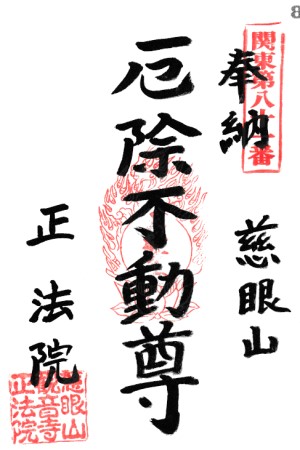 関東第八十番
奉納 慈眼山
厄除不動尊
正法院
慈眼山
観音寺
正法院